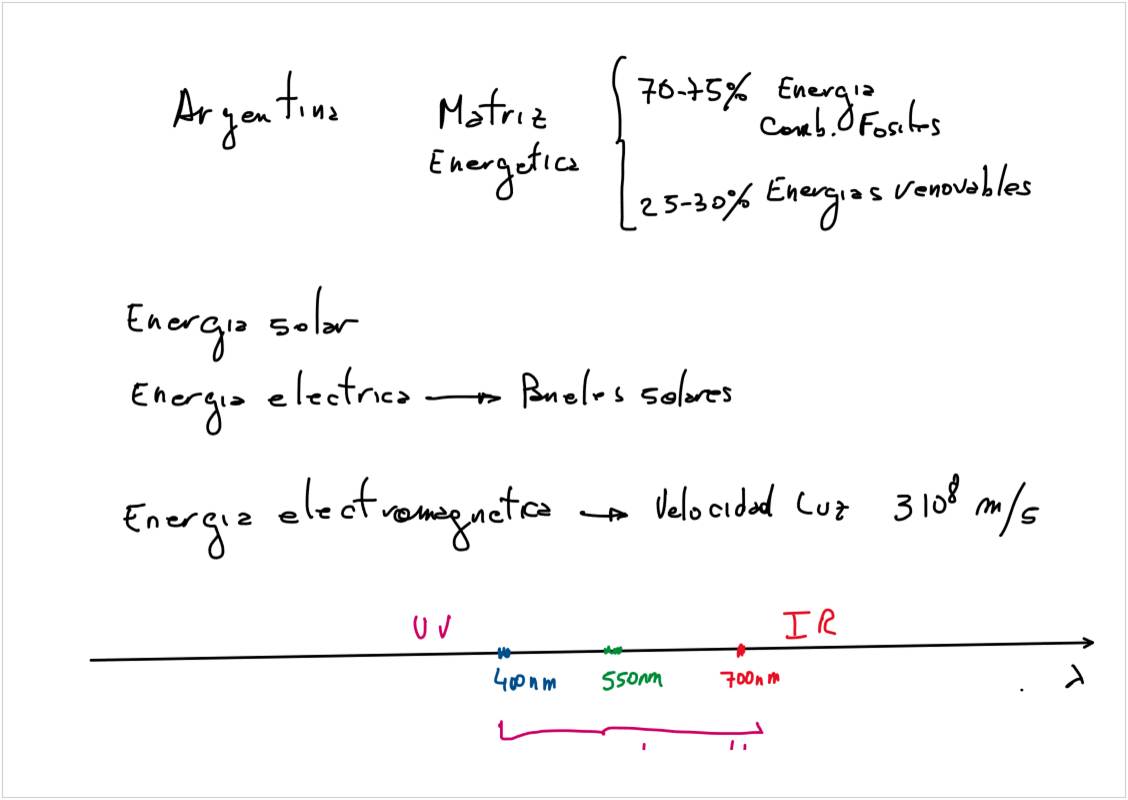 Argentina
Matriz
Energetica
70-75% Energia
Comb. Fosiles
25-30% Energias renovables
Energia solar
Energia electrica → Paneles solares
Energia electromagnetica → Velocidad Luz 3 10⁸ m/s
UV IR
400nm 550nm 700nm λ